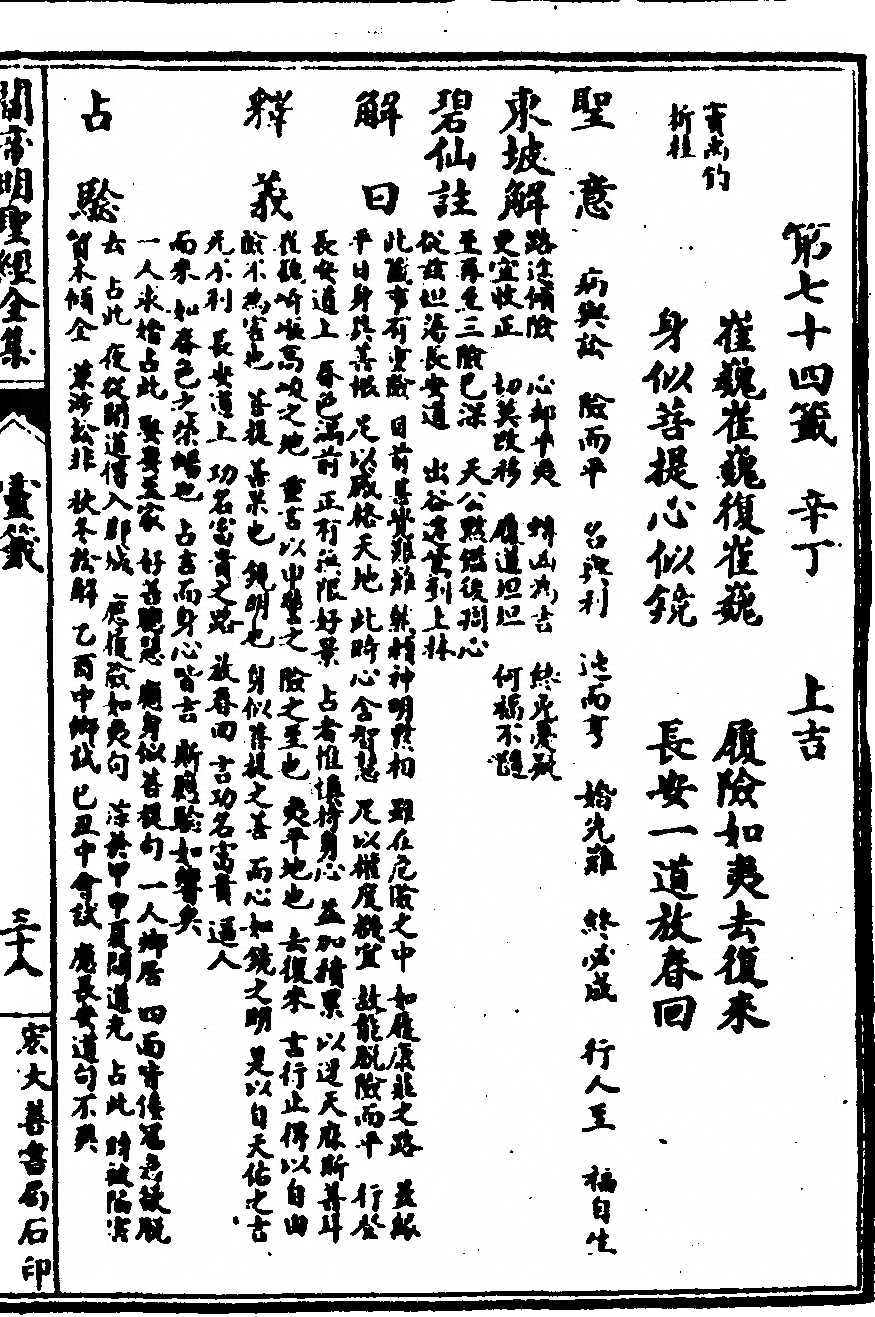 第七十四籤　辛丁　上吉
竇禹鈞
折桂
崔巍崔巍復崔巍　履險如夷去復來
身似菩提心似鏡　長安一道放春回
聖意　病與訟　險而平　名與利　進而亨　婚先難　終必成　行人至　福自生
東坡解　路途傾險　心却平夷　轉凶為吉　終无憂疑
更宜守正　切莫改移　履道坦坦　何福不隨
碧仙註　至再至三險已深　天公默鑑復猶心
從茲坦蕩長安道　出谷遷鶯到上林
解曰　此籤事有重險　目前甚覺艱難　然精神明默相　雖在危險之中　如履康莊之路　並緣
平日身與善根　足以感格天地　此時心含智慧　足以權度機宜　故能脫險而平　行登
長安道上　春色滿前　正有無限好景　占者惟慎持身心　益加積累　以迓天庥斯善耳
釋義　崔巍嶇嶮高峻之地　重言以申警之　險之至也　夷平地也　去復來　言行止得以自由
險不為害也　菩提　善果也　鏡明也　身似菩提之善　而心如鏡之明　是以自天佑之吉
无不利　長安道上　功名富貴之路　放春回　言功名富貴　逼人
而來　如春色之荣暢也　占吉而身心皆吉　斯應驗如響矣
占驗　一人求婚占此　娶妻至家　好善聰慧　應身似菩提句　一人鄉居　四面皆倭寇急欲脫
去　占此　夜從間道得入郡城　應履險如夷句　萍於甲申夏間道光　占此　時被陷害
資本傾全　兼涉訟非　秋冬於解　乙酉中鄉試　己丑中會試　應長安道句不爽
關帝明聖經全集　靈籤　三十八　宏大善書局石印